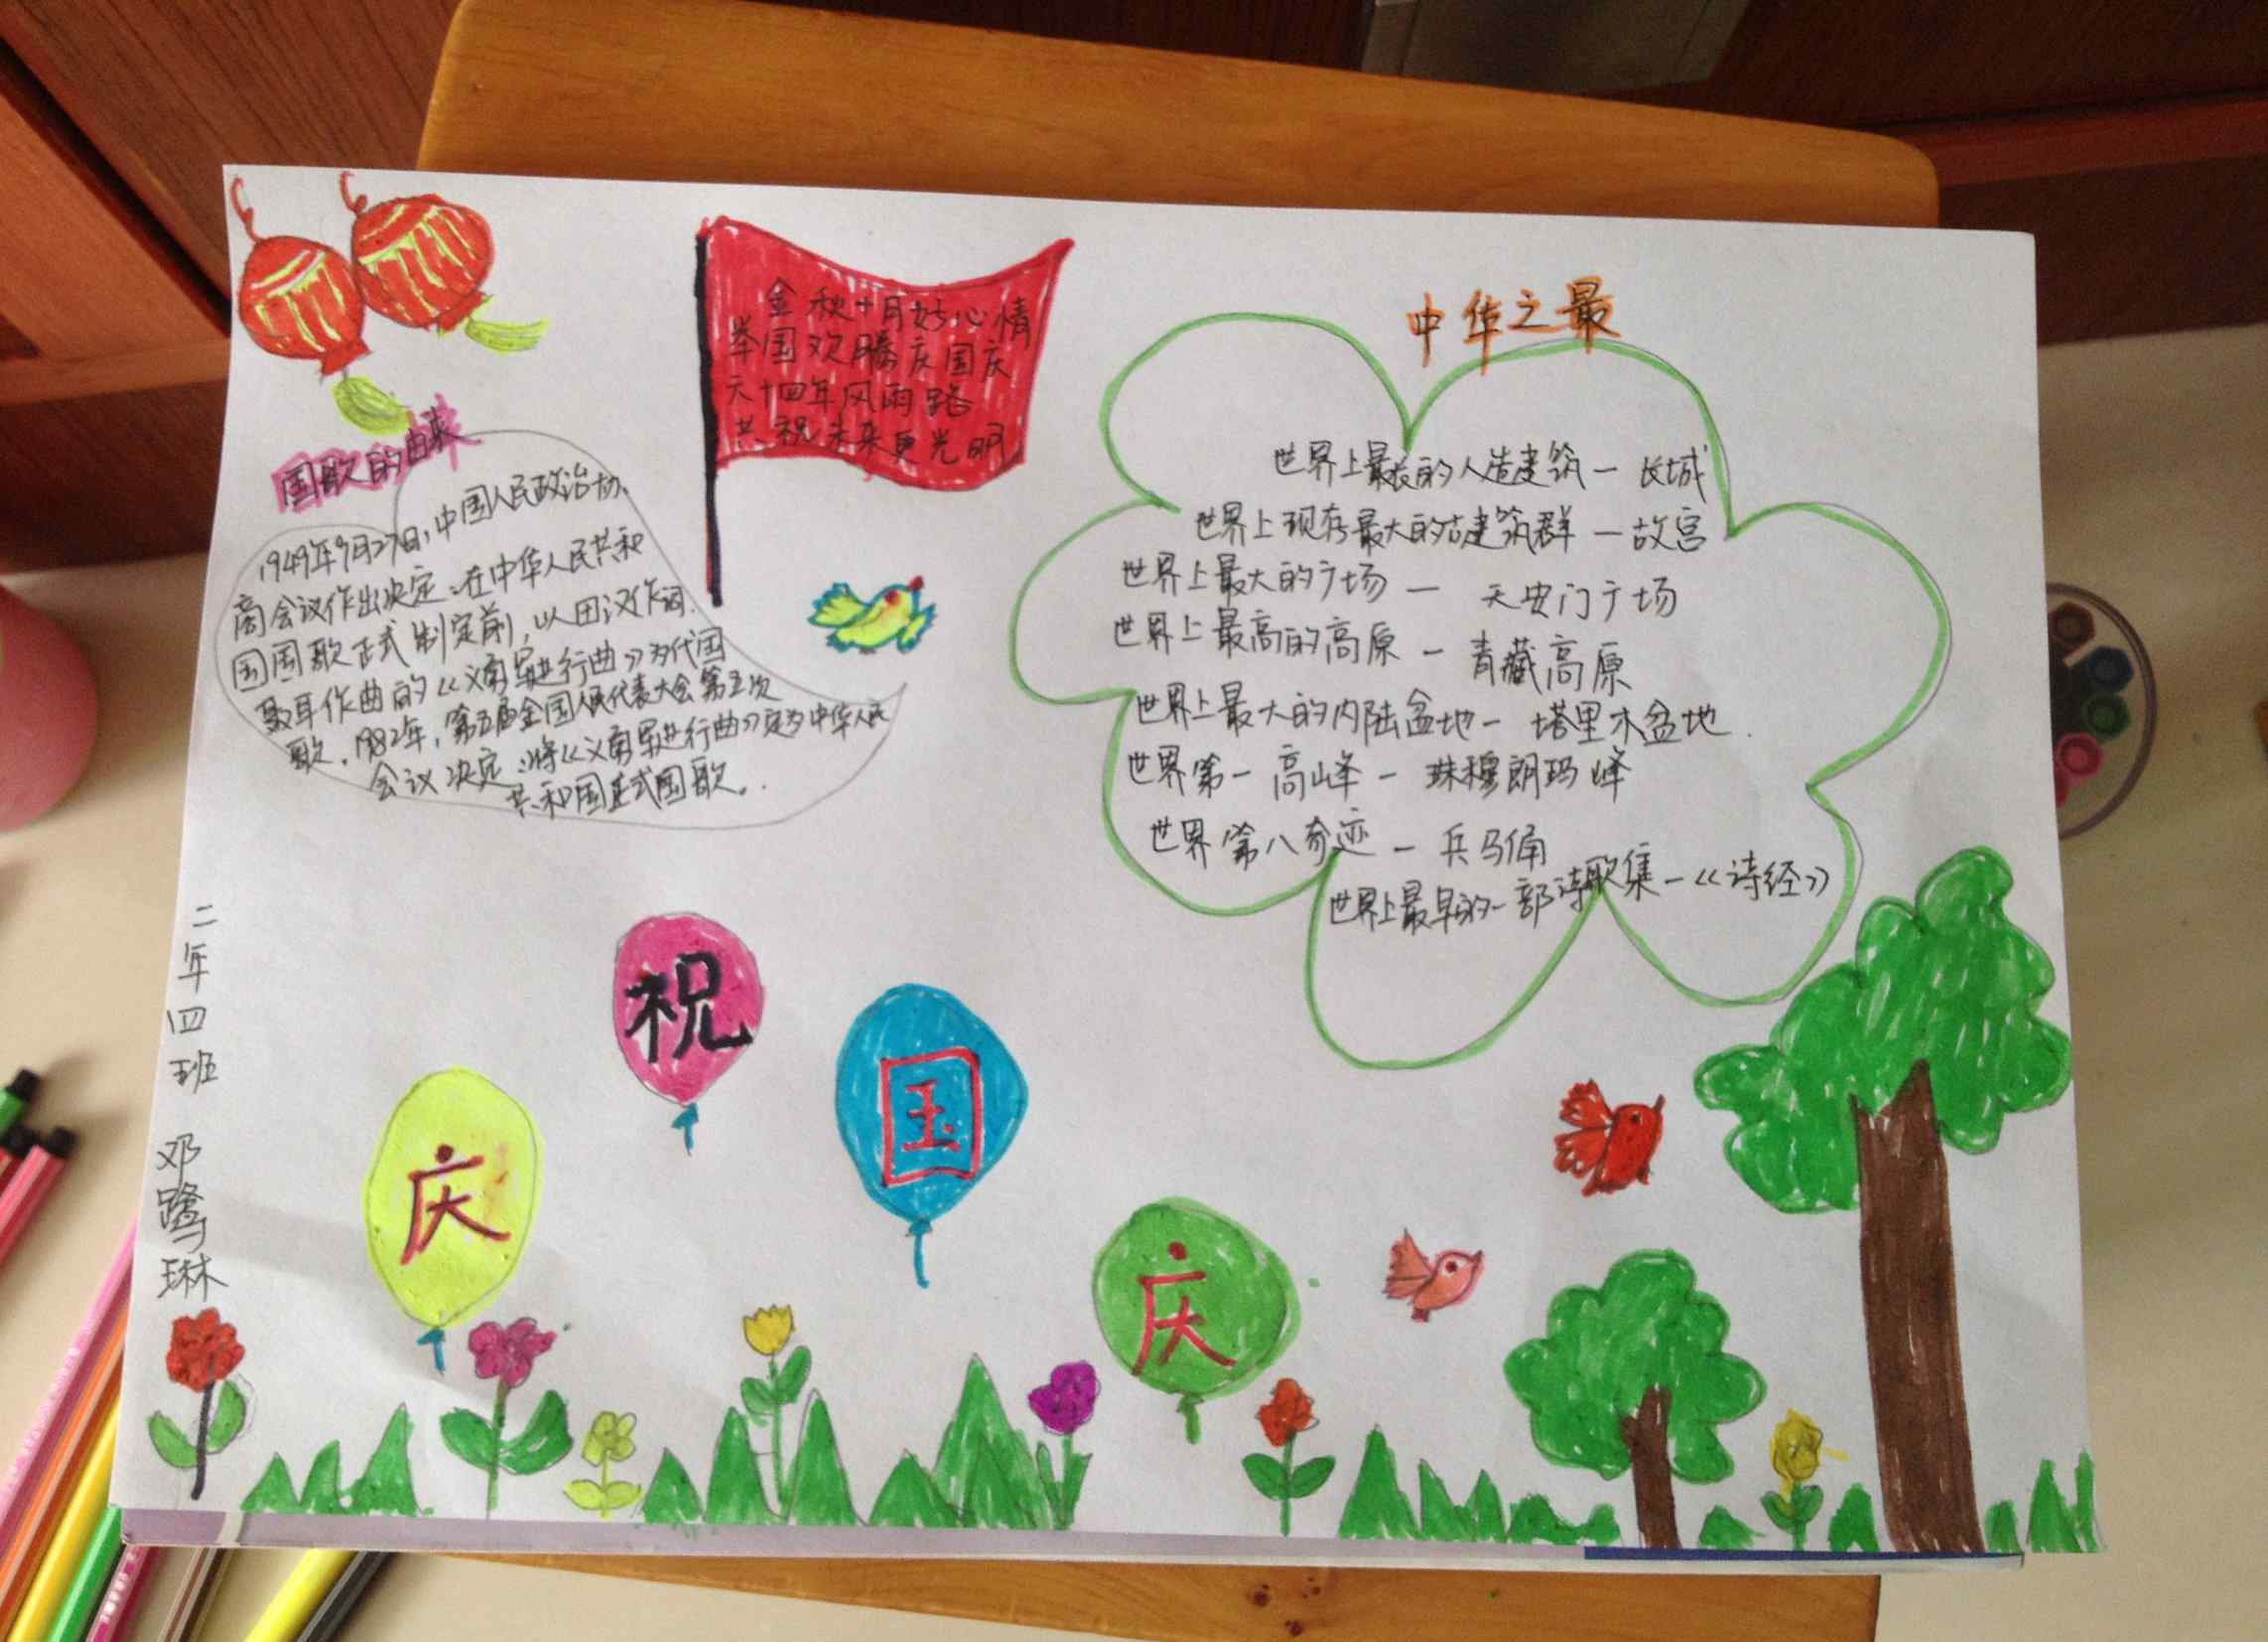 金秋十月好心情
举国欢腾庆国庆
六十四年风雨路
共祝未来更光明
国歌的由来
1949年9月27日,中国人民政治协
商会议作出决定:在中华人民共和
国国歌正式制定前,以田汉作词.
聂耳作曲的《义勇军进行曲》为代国
歌。1982年,第五届全国人民代表大会第五次
会议决定:将《义勇军进行曲》定为中华人民
共和国正式国歌。
中华之最
世界上最长的人造建筑一长城
世界上现存最大的古建筑群一故宫
世界上最大的广场一天安门广场
世界上最高的高原一青藏高原
世界上最大的内陆盆地一塔里木盆地.
世界第一高峰一珠穆朗玛峰
世界第八奇迹一兵马俑
世界上最早的一部诗歌集一《诗经》
二年四班 邓鹭琳
庆
祝
国
庆